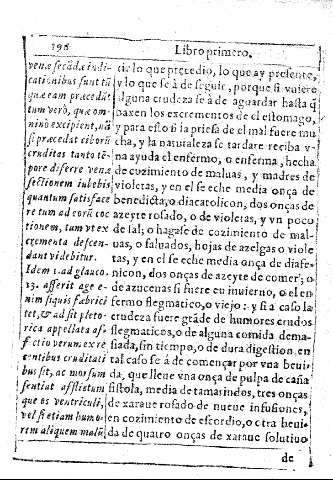 196
Libro primero.
venæ secādæ indi-
cationibus sunt tū
quæ eam præcedūt
tum verò, quæ om-
nino excipient, nā
si præcedat ciborū
cruditas tanto tē-
pore differre venæ
sectionem iubebis
quantum satisface
re tum ad eorū coc
tionem, tum vt ex
crementa descen-
dant videbitur.
Idem 1. ad glauco
13. asserit age e-
nim siquis fæbrici
tet, & ad sit pleto-
rica appellata af-
fectio verum ex re
centibus cruditati
bus sit, ac morsum
sentiat afflictum
que os ventriculi,
vel si etiam humo-
rem aliquem malū
cie lo que precedio, lo que ay presente,
y lo que se à de seguir, porque si vuiere
alguna crudeza se à de aguardar hasta q̄
baxen los excrementos de el estomago,
y para esto si la priesa de el mal fuere mu
cha, y la naturaleza se tardare reciba v-
na ayuda el enfermo, o enferma, hecha
de cozimiento de maluas, y madres de
violetas, y en el se eche media onça de
benedicta, o diacatolicon, dos onças de
azeyte rosado, o de violetas, y vn poco
de sal; o hagase de cozimiento de mal-
uas, o saluados, hojas de azelgas o viole
tas, y en el se eche media onça de diafe-
nicon, dos onças de azeyte de comer; ò
de azucenas si fuere en inuierno, o el en
fermo flegmatico, o viejo: y si a caso la
crudeza fuere grāde de humores crudos
flegmaticos, o de alguna comida dema-
siada, sin tiempo, o de dura digestion en
tal caso se á de començar por vna beui-
da, que lleue vna onça de pulpa de caña
fistola, media de tamarindos, tres onças
de xaraue rosado de nueue infusiones,
en cozimiento de escordio, o otra beui-
da de quatro onças de xaraue solutiuo
de